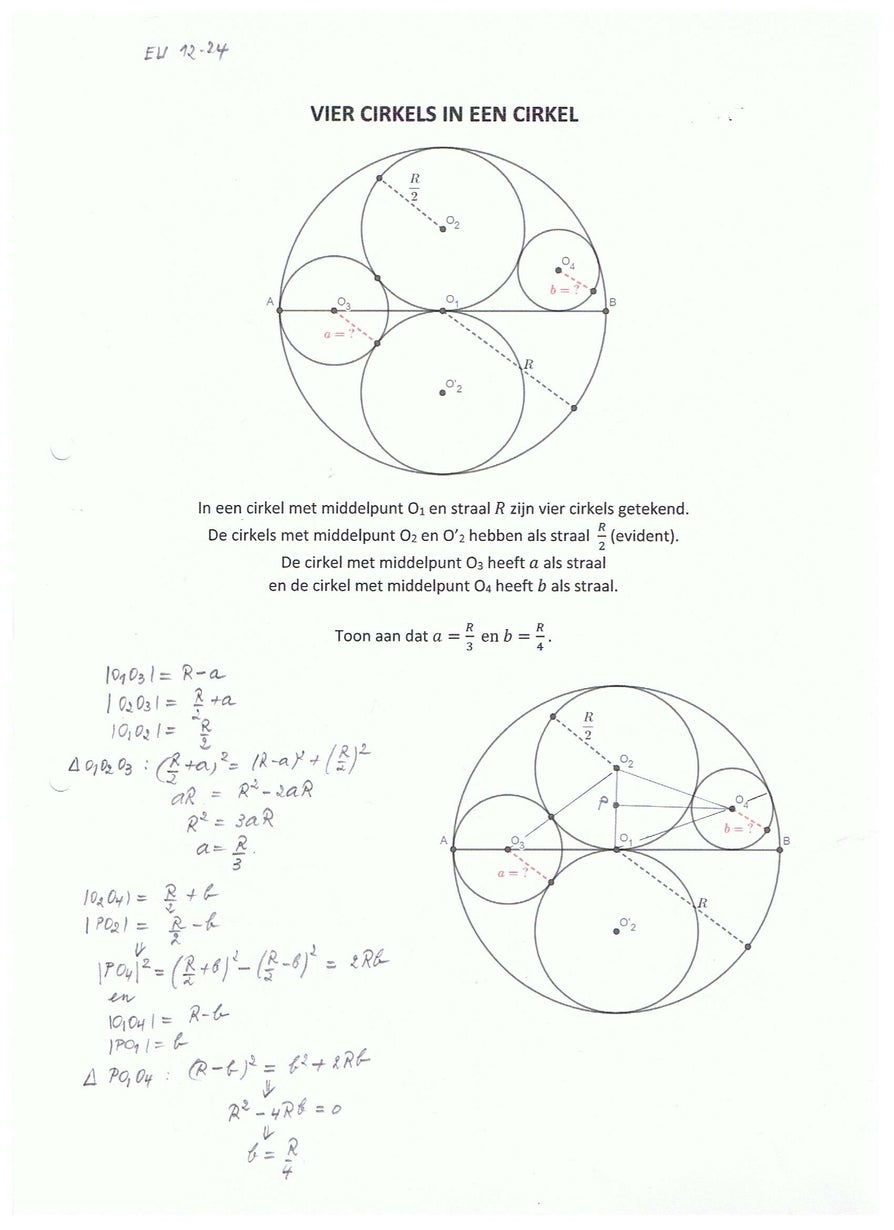 EW 12-24
VIER CIRKELS IN EEN CIRKEL
R/2
O₂
O₄
b = ?
A
O₃
O₁
B
a = ?
R
O'₂
In een cirkel met middelpunt O₁ en straal R zijn vier cirkels getekend.
De cirkels met middelpunt O₂ en O'₂ hebben als straal R/2 (evident).
De cirkel met middelpunt O₃ heeft a als straal
en de cirkel met middelpunt O₄ heeft b als straal.
Toon aan dat a = R/3 en b = R/4.
|O₁O₃| = R-a
|O₂O₃| = R/2 + a
|O₁O₂| = R/2
Δ O₁O₂O₃ : (R/2 + a)² = (R-a)² + (R/2)²
aR = R² - 2aR
R² = 3aR
a = R/3.
|O₂O₄| = R/2 + b
|PO₂| = R/2 - b
⇓
|PO₄|² = (R/2 + b)² - (R/2 - b)² = 2Rb
en
|O₁O₄| = R-b
|PO₁| = b
Δ PO₁O₄ : (R-b)² = b² + 2Rb
⇓
R² - 4Rb = 0
⇓
b = R/4
R/2
O₂
P
O₄
b = ?
A
O₃
O₁
B
a = ?
R
O'₂